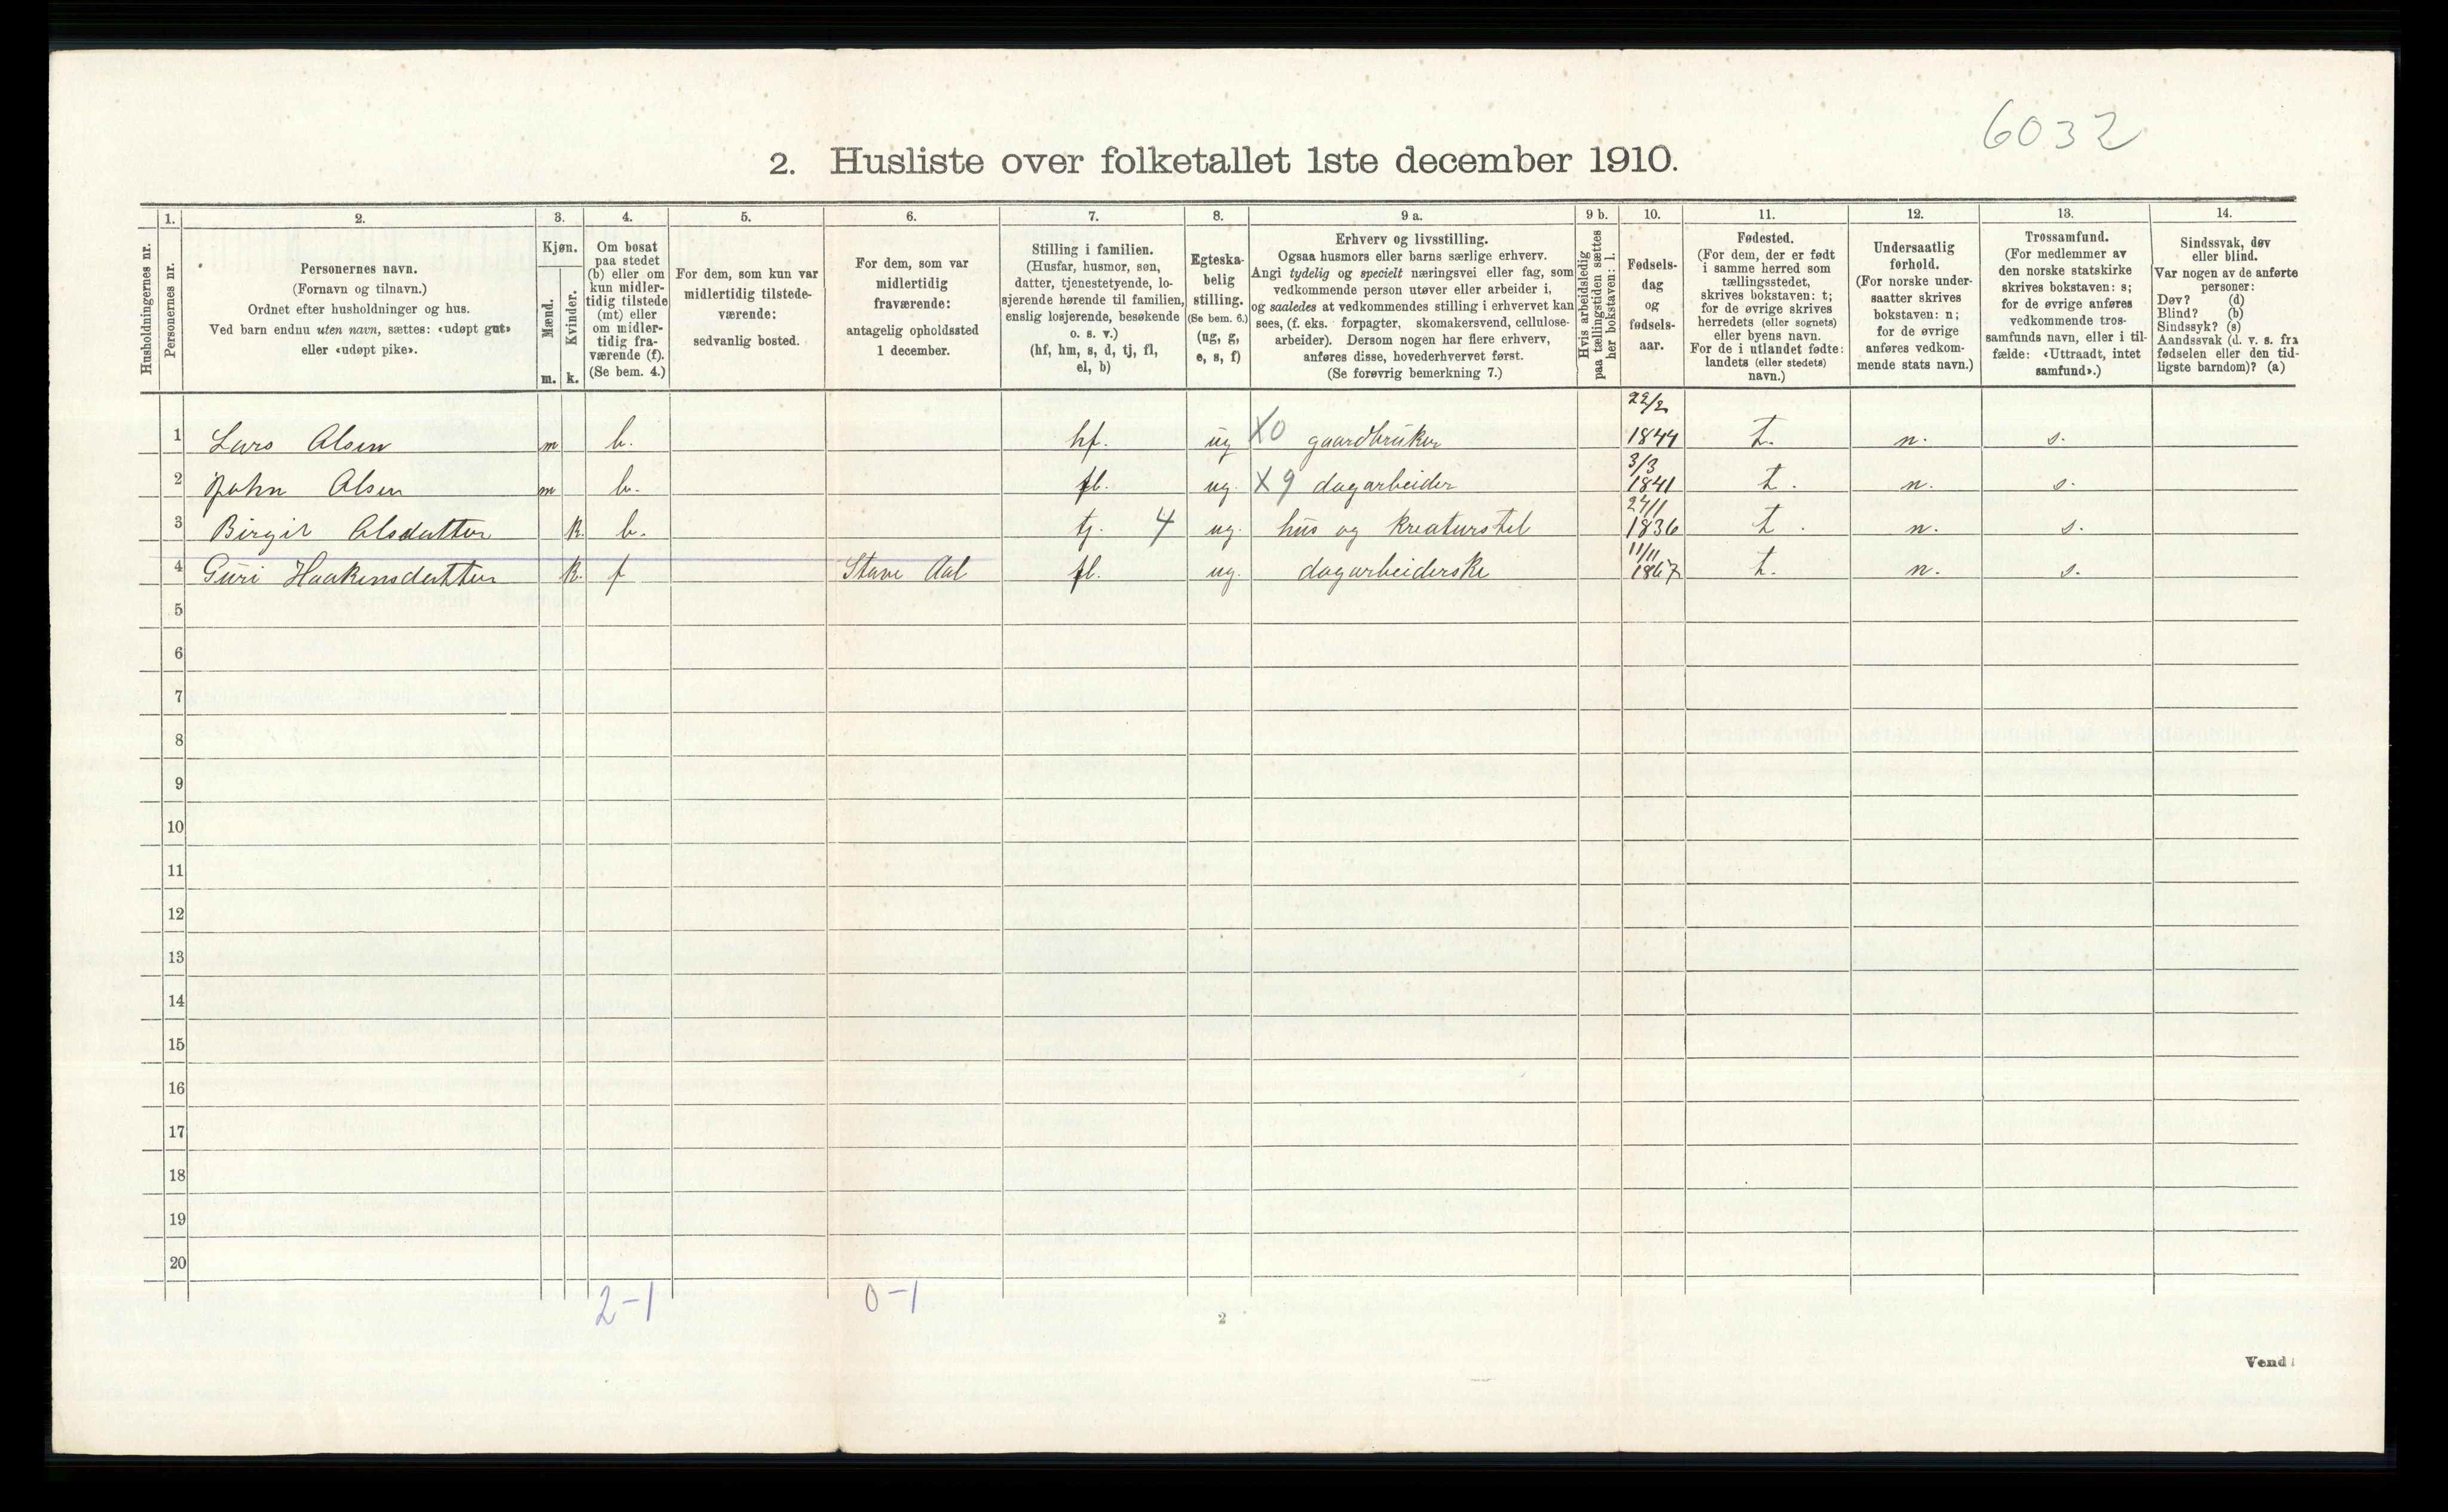 6032
2. Husliste over folketallet 1ste december 1910.
Husholdningernes nr.
1.
Personernes nr.
2.
Personernes navn.
(Fornavn og tilnavn.)
Ordnet efter husholdninger og hus.
Ved barn endnu uten navn, sættes: «udøpt gut»
eller «udøpt pike».
3.
Kjøn.
Mænd.
Kvinder.
m. k.
4.
Om bosat
paa stedet
(b) eller om
kun midler-
tidig tilstede
(mt) eller
om midler-
tidig fra-
værende (f).
(Se bem. 4.)
5.
For dem, som kun var
midlertidig tilstede-
værende:
sedvanlig bosted.
6.
For dem, som var
midlertidig
fraværende:
antagelig opholdssted
1 december.
7.
Stilling i familien.
(Husfar, husmor, søn,
datter, tjenestetyende, lo-
sjerende hørende til familien,
enslig losjerende, besøkende
o. s. v.)
(hf, hm, s, d, tj, fl,
el, b)
8.
Egteska-
belig
stilling.
(Se bem. 6.)
(ug, g,
e, s, f)
9 a.
Erhverv og livsstilling.
Ogsaa husmors eller barns særlige erhverv.
Angi tydelig og specielt næringsvei eller fag, som
vedkommende person utøver eller arbeider i,
og saaledes at vedkommendes stilling i erhvervet kan
sees, (f. eks. forpagter, skomakersvend, cellulose-
arbeider). Dersom nogen har flere erhverv,
anføres disse, hovederhvervet først.
(Se forøvrig bemerkning 7.)
9 b.
Hvis arbeidsledig
paa tællingstiden sættes
her bokstaven: l.
10.
Fødsels-
dag
og
fødsels-
aar.
11.
Fødested.
(For dem, der er født
i samme herred som
tællingsstedet,
skrives bokstaven: t;
for de øvrige skrives
herredets (eller sognets)
eller byens navn.
For de i utlandet fødte:
landets (eller stedets)
navn.)
12.
Undersaatlig
forhold.
(For norske under-
saatter skrives
bokstaven: n;
for de øvrige
anføres vedkom-
mende stats navn.)
13.
Trossamfund.
(For medlemmer av
den norske statskirke
skrives bokstaven: s;
for de øvrige anføres
vedkommende tros-
samfunds navn, eller i til-
fælde: «Uttraadt, intet
samfund».)
14.
Sindssvak, døv
eller blind.
Var nogen av de anførte
personer:
Døv? (d)
Blind? (b)
Sindssyk? (s)
Aandssvak (d. v. s. fra
fødselen eller den tid-
ligste barndom)? (a)
22/2
1 Lars Alsen m b. hf. ug X0 gaardbruker 1844 t. n. s.
3/3
2 John Alsen m b. fl. ug. X9 dagarbeider 1841 t. n. s.
24/1
3 Birgit Alsdatter k. b. tj. 4 ug. hus og kreaturstel 1836 t. n. s.
11/11
4 Guri Haakensdatter k. f Stave Aal fl. ug. dagarbeiderske 1867 t. n. s.
5
6
7
8
9
10
11
12
13
14
15
16
17
18
19
20
2-1 0-1
2
Vend!